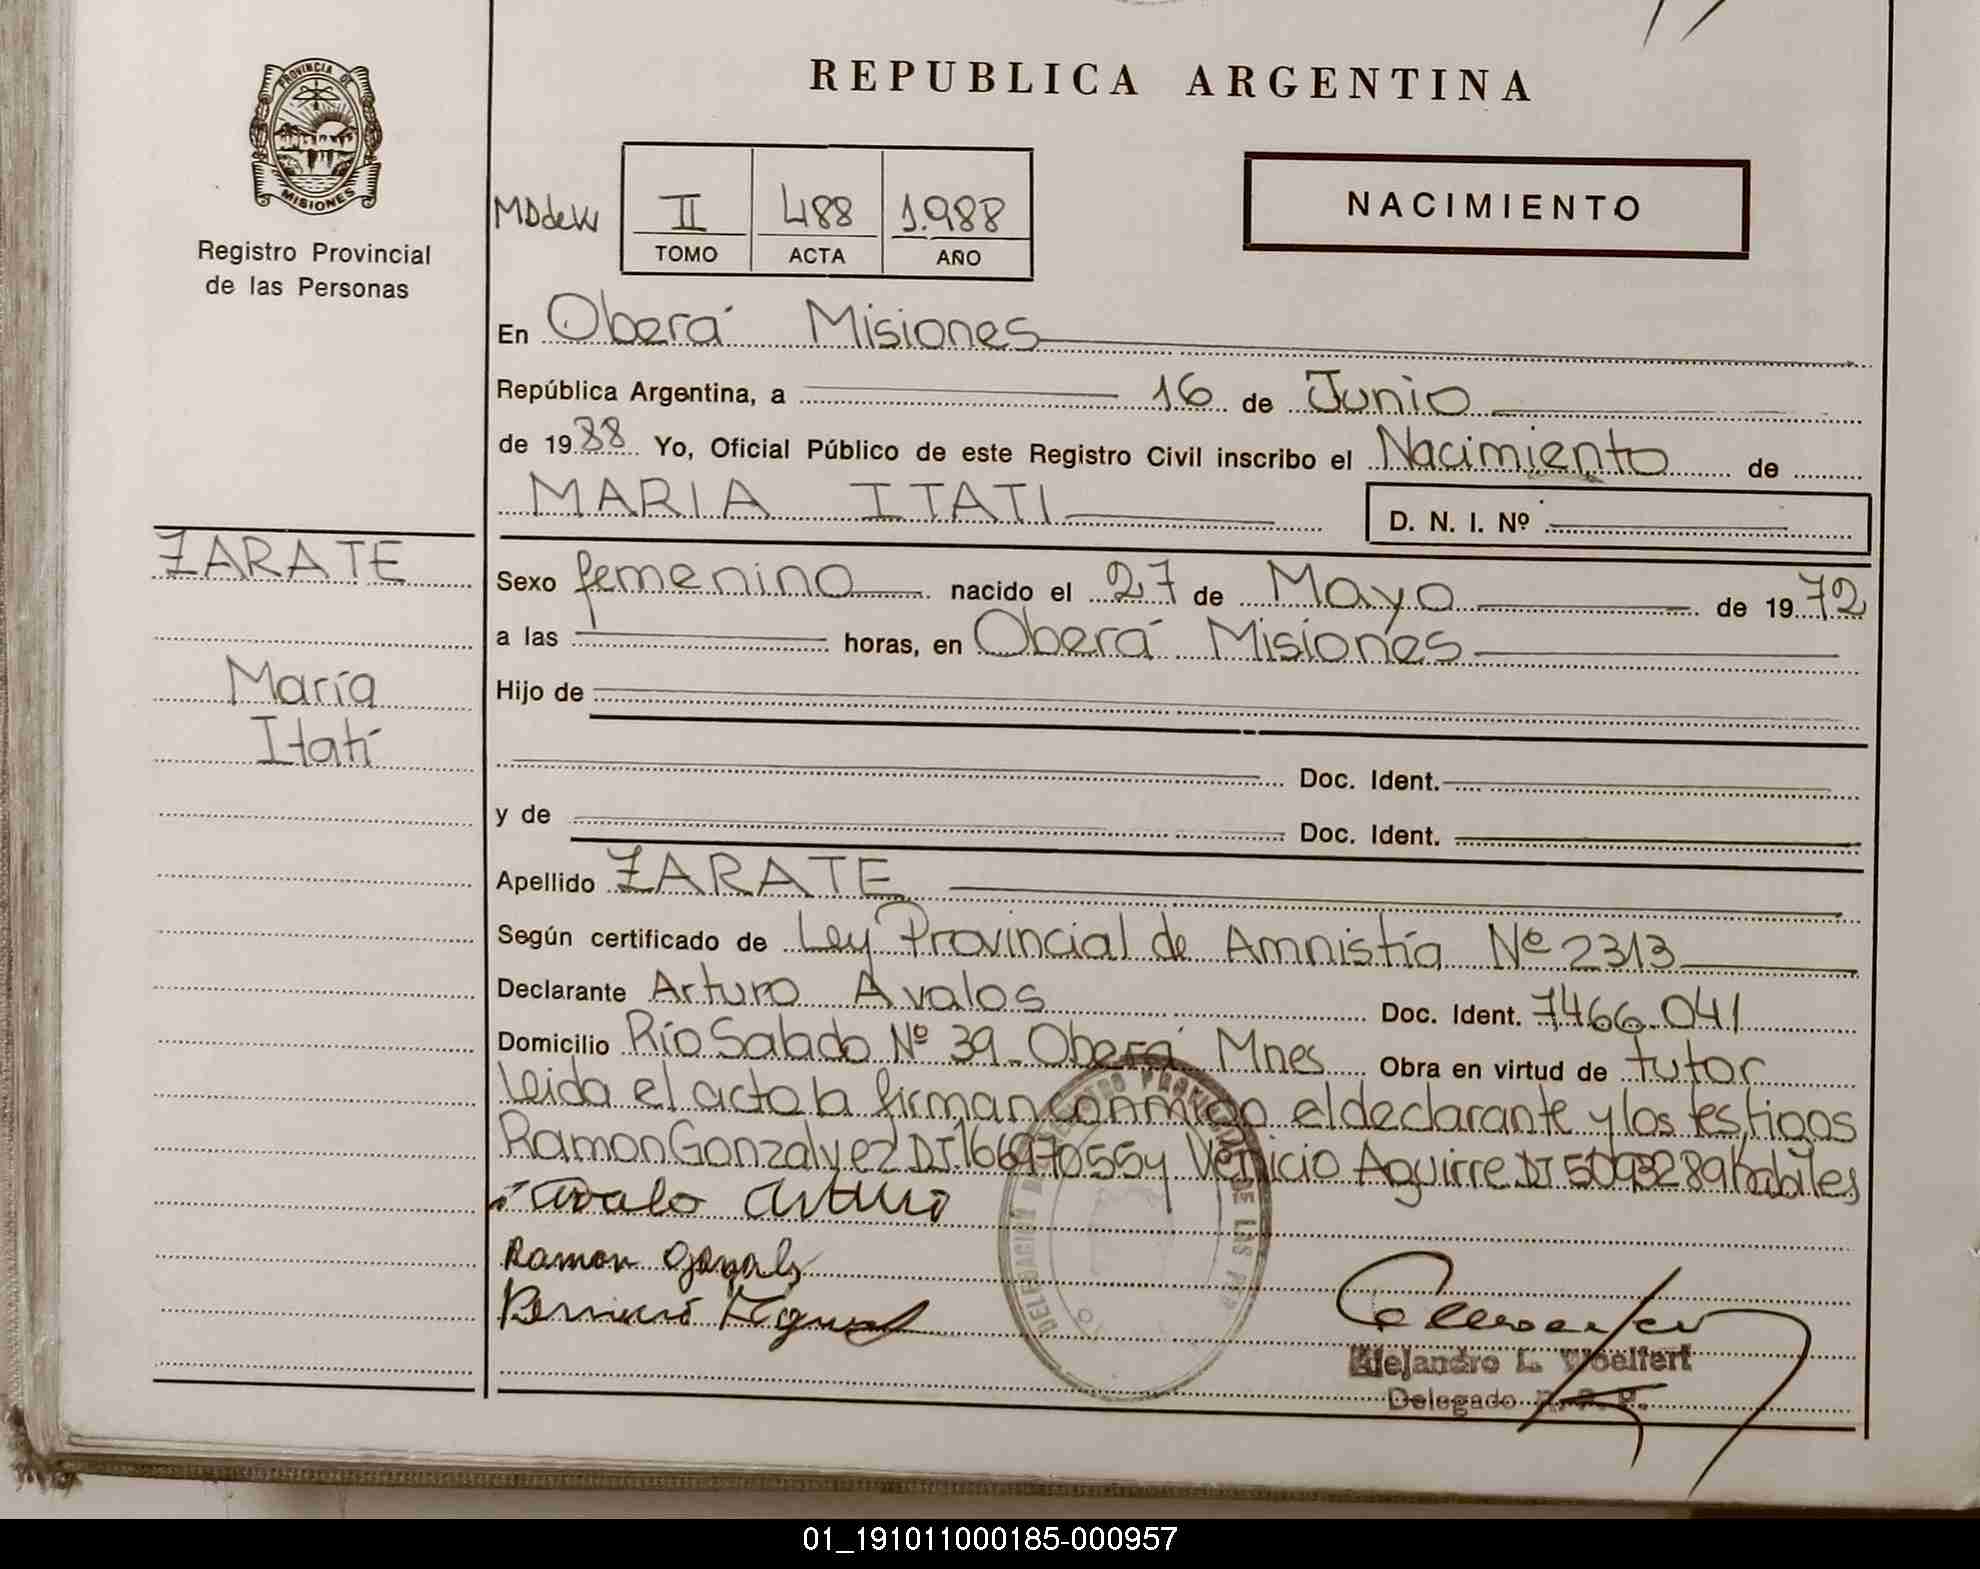 REPUBLICA ARGENTINA
PROVINCIA DE
MISIONES
Registro Provincial
de las Personas
NACIMIENTO
MDdeW
II 488 1.988
TOMO ACTA AÑO
En Oberá Misiones
República Argentina, a 16 de Junio
de 1988 Yo, Oficial Público de este Registro Civil inscribo el Nacimiento de
MARIA ITATI
D. N. I. Nº
ZARATE
María
Itatí
Sexo femenino nacido el 27 de Mayo de 1972
a las horas, en Oberá Misiones
Hijo de
Doc. Ident.
y de Doc. Ident.
Apellido ZARATE
Según certificado de Ley Provincial de Amnistía Nº 2313
Declarante Arturo Avalos Doc. Ident. 7466.041
Domicilio Río Salado Nº 39 - Oberá Mnes Obra en virtud de tutor
Leida el acta la firman conmigo el declarante y los testigos
Ramon Gonzalvez DI. 16697055 y Venicio Aguirre DI 5093289 habiles
Avalo Arturo
Ramon
Alejandro L. Woelfert
Delegado R. P. P.
01_191011000185-000957